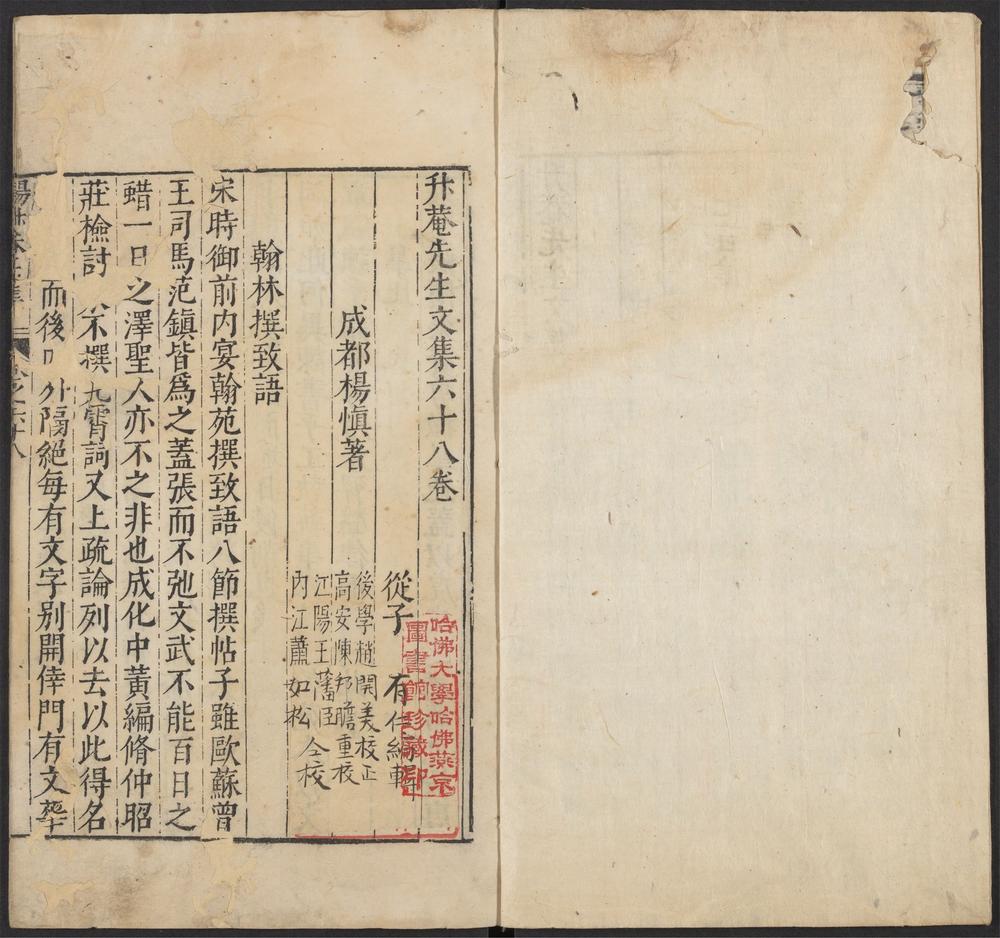 升菴先生文集六十八卷
從子 有仁編輯
成都楊愼著
後學趙開美校正
高安陳邦瞻重校
江陽王藩臣
內江蕭如松 仝校
翰林撰致語
宋時御前内宴翰苑撰致語八節撰帖子雖歐蘇曾
王司馬范鎮皆爲之蓋張而不弛文武不能百日之
蜡一日之澤聖人亦不之非也成化中黃編脩仲昭
莊檢討 不撰九霄詞又上疏論列以去以此得名
而後 外隔絕每有文字别開倖門有文華
哈佛大學哈佛燕京
圖書館珍藏印